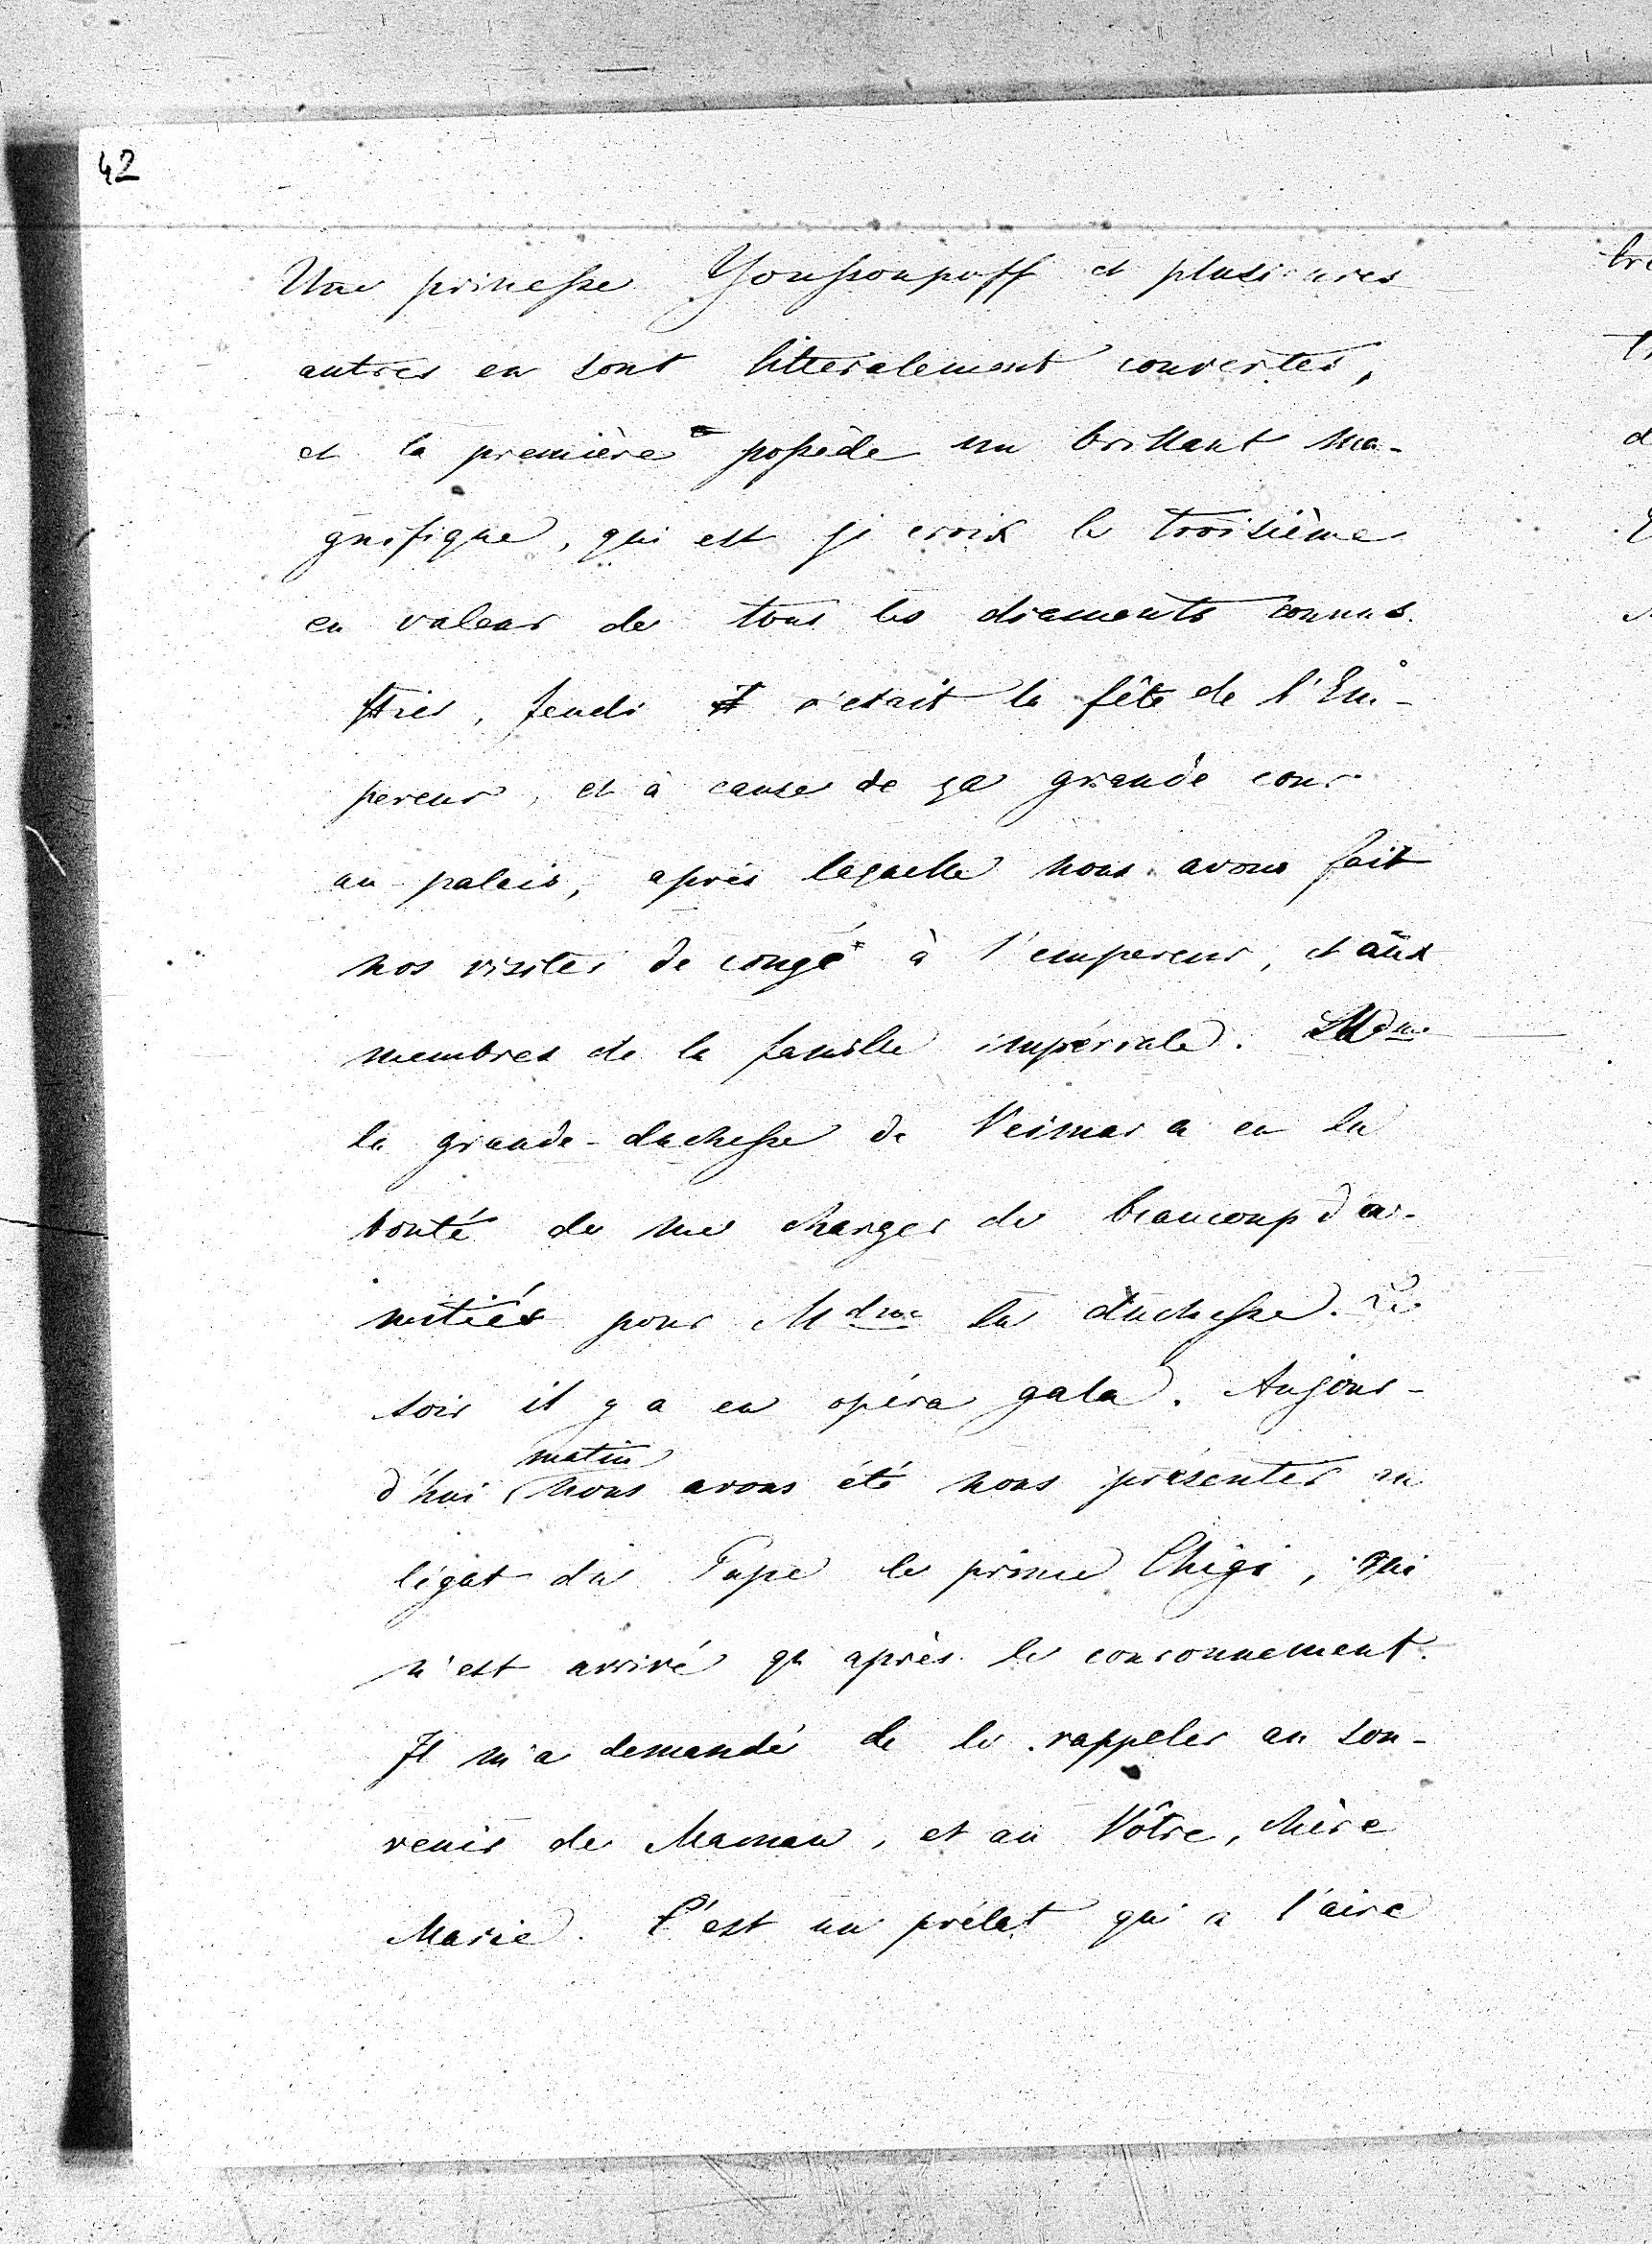 42
Une princesse Youssoupoff et plusieures
autres en sont litteralement couvertes,
et la première possède un brillant ma-
gnifique, qui est je crois le troisième
en valeur de tous les diaments connus.
Hier, Jeudi c'etait la fête de l'Em-
pereur, et à cause de ça grande cour
au palais, après laquelle nous avons fait
nos visites de congé à l'empereur, et aux
membres de la famille impériale. Mdme
la grande-duchesse de Veimar a eu la
bonté de me charger de beaucoup d'a-
mitiés pour Mdme la duchesse. Le
soir il y a eu opéra gala. Aujour-
matin
d'hui nous avons été nous présenter au
légat du Pape le prince Chigi, qui
n'est arrivé qu'après le couronnement.
Il m'a demandé de le rappeler au sou-
venir de Maman, et au Vôtre, chère
Marie. C'est un prélat qui a l'aire